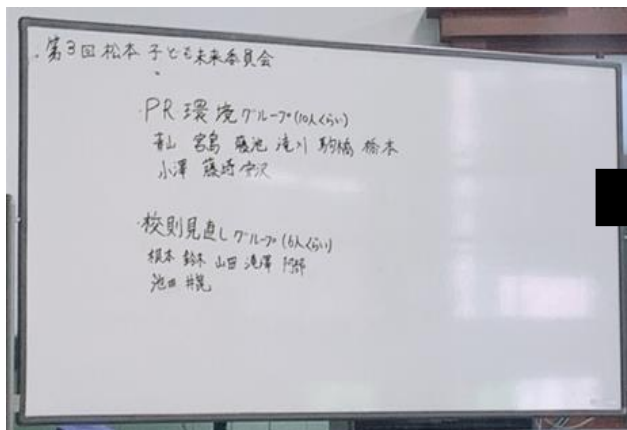 ・第3回 松本 子ども未来委員会
・PR環境グループ(10人くらい)
青山 宮島 藤池 滝川 駒橋 橋本
小澤 藤崎 宇沢
・校則見直しグループ(6人くらい)
根本 鈴木 山田 滝澤 阿部
池田